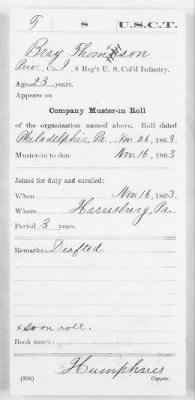 T 8 U.S.C.T.
Benj Thompson
Priv, Co. I, 8 Reg't U. S. Col'd Infantry.
Age 23 years.
Appears on
Company Muster-in Roll
of the organization named above. Roll dated
Philadelphia, Pa. Nov. 26, 1863.
Muster-in to date Nov. 16, 1863
Joined for duty and enrolled:
When Nov. 16, 1863.
Where Harrisburg, Pa.
Period 3 years.
Remarks: Drafted.
x so on roll.
Book mark:
Humphries
(356) Copyist.